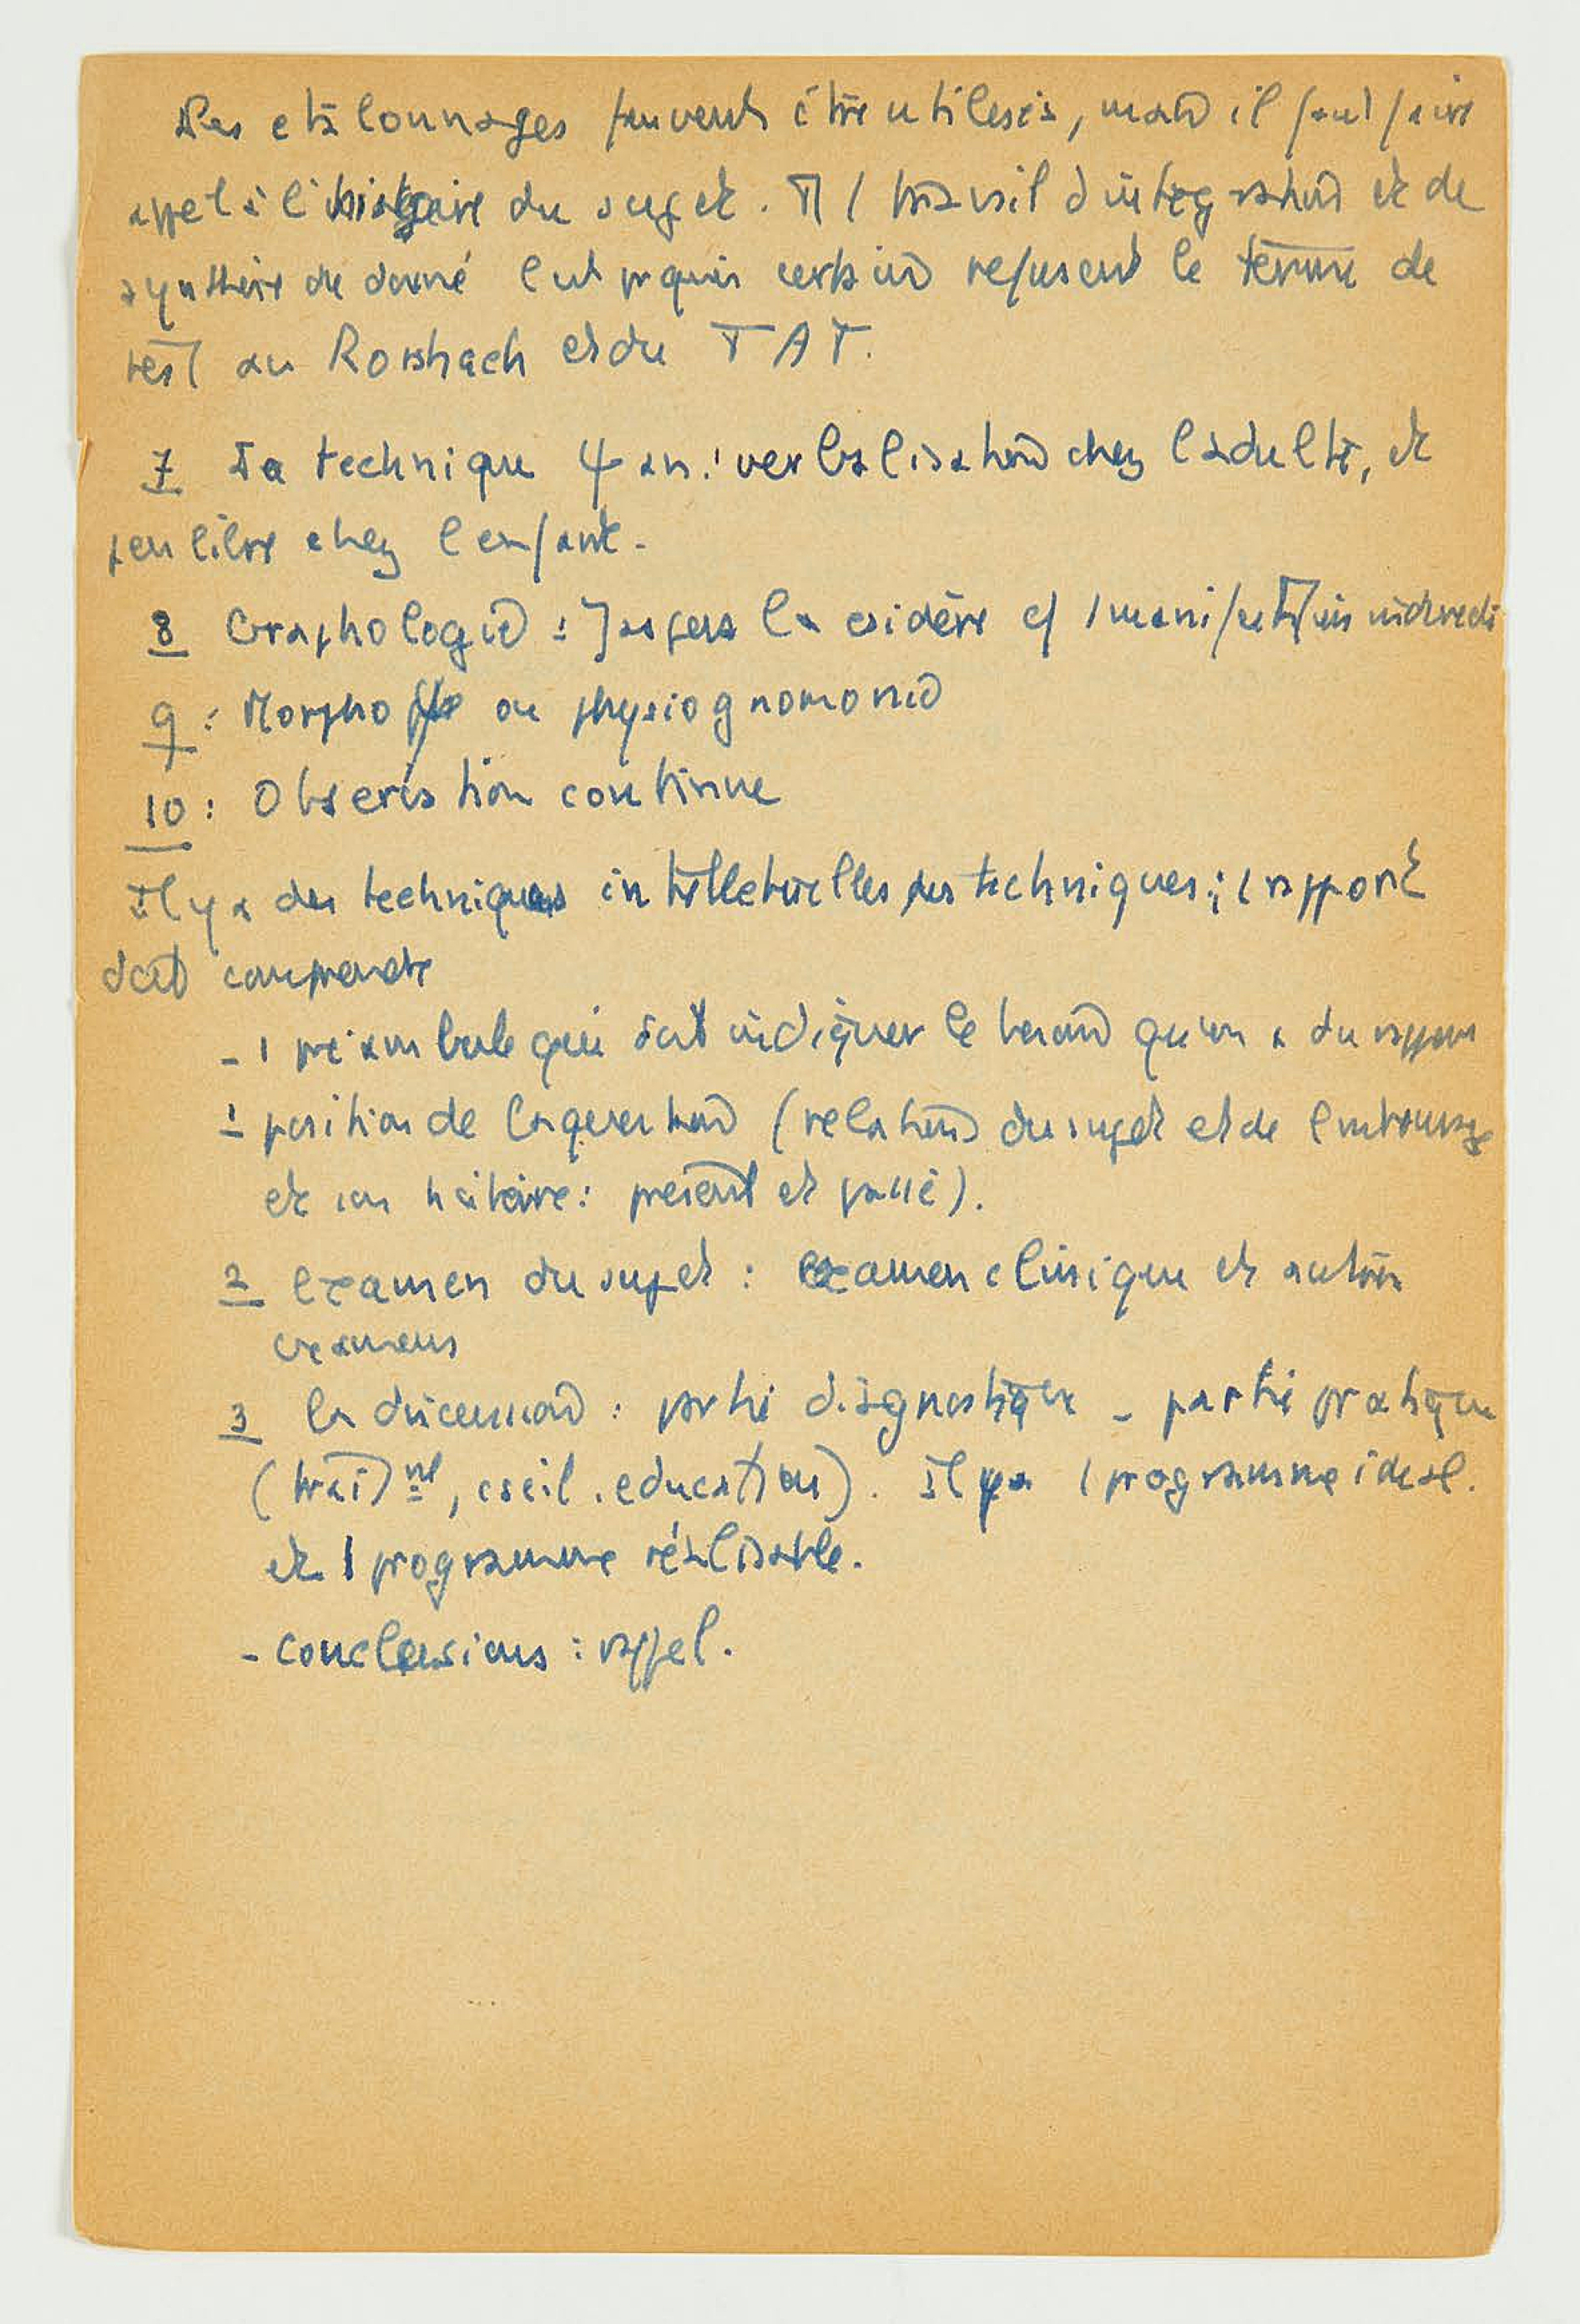 Des etalonnages peuvent être utilisés, mais il faut faire
appel à l'histoire du sujet. Il 1 travail d'integration et de
synthèse de donné C'est pquoi certains refusent le terme de
test au Rorshach et du TAT.
7 La technique ψ an: verbalisation chez l'adulte, et
jeu libre chez l'enfant.
8 Graphologie : Jaspers la csidère c/ 1 manifestation indirecte
9 : Morpho ψ ou physiognomonie
10 : Observation continue
Il y a des techniques intellectuelles des techniques ; 1 rapport
doit comprendre
- 1 préambule qui doit indiquer le besoin qu'on a du rapport
1 position de la question (relations du sujet et de l'entourage
et son histoire : présent et passé).
2 examen du sujet : examen clinique et autres
examens
3 la discussion : partie diagnostique - partie pratique
(trait) nt, cseil. education). Il y a 1 programme idéal.
et 1 programme réalisable.
- conclusions : rappel.